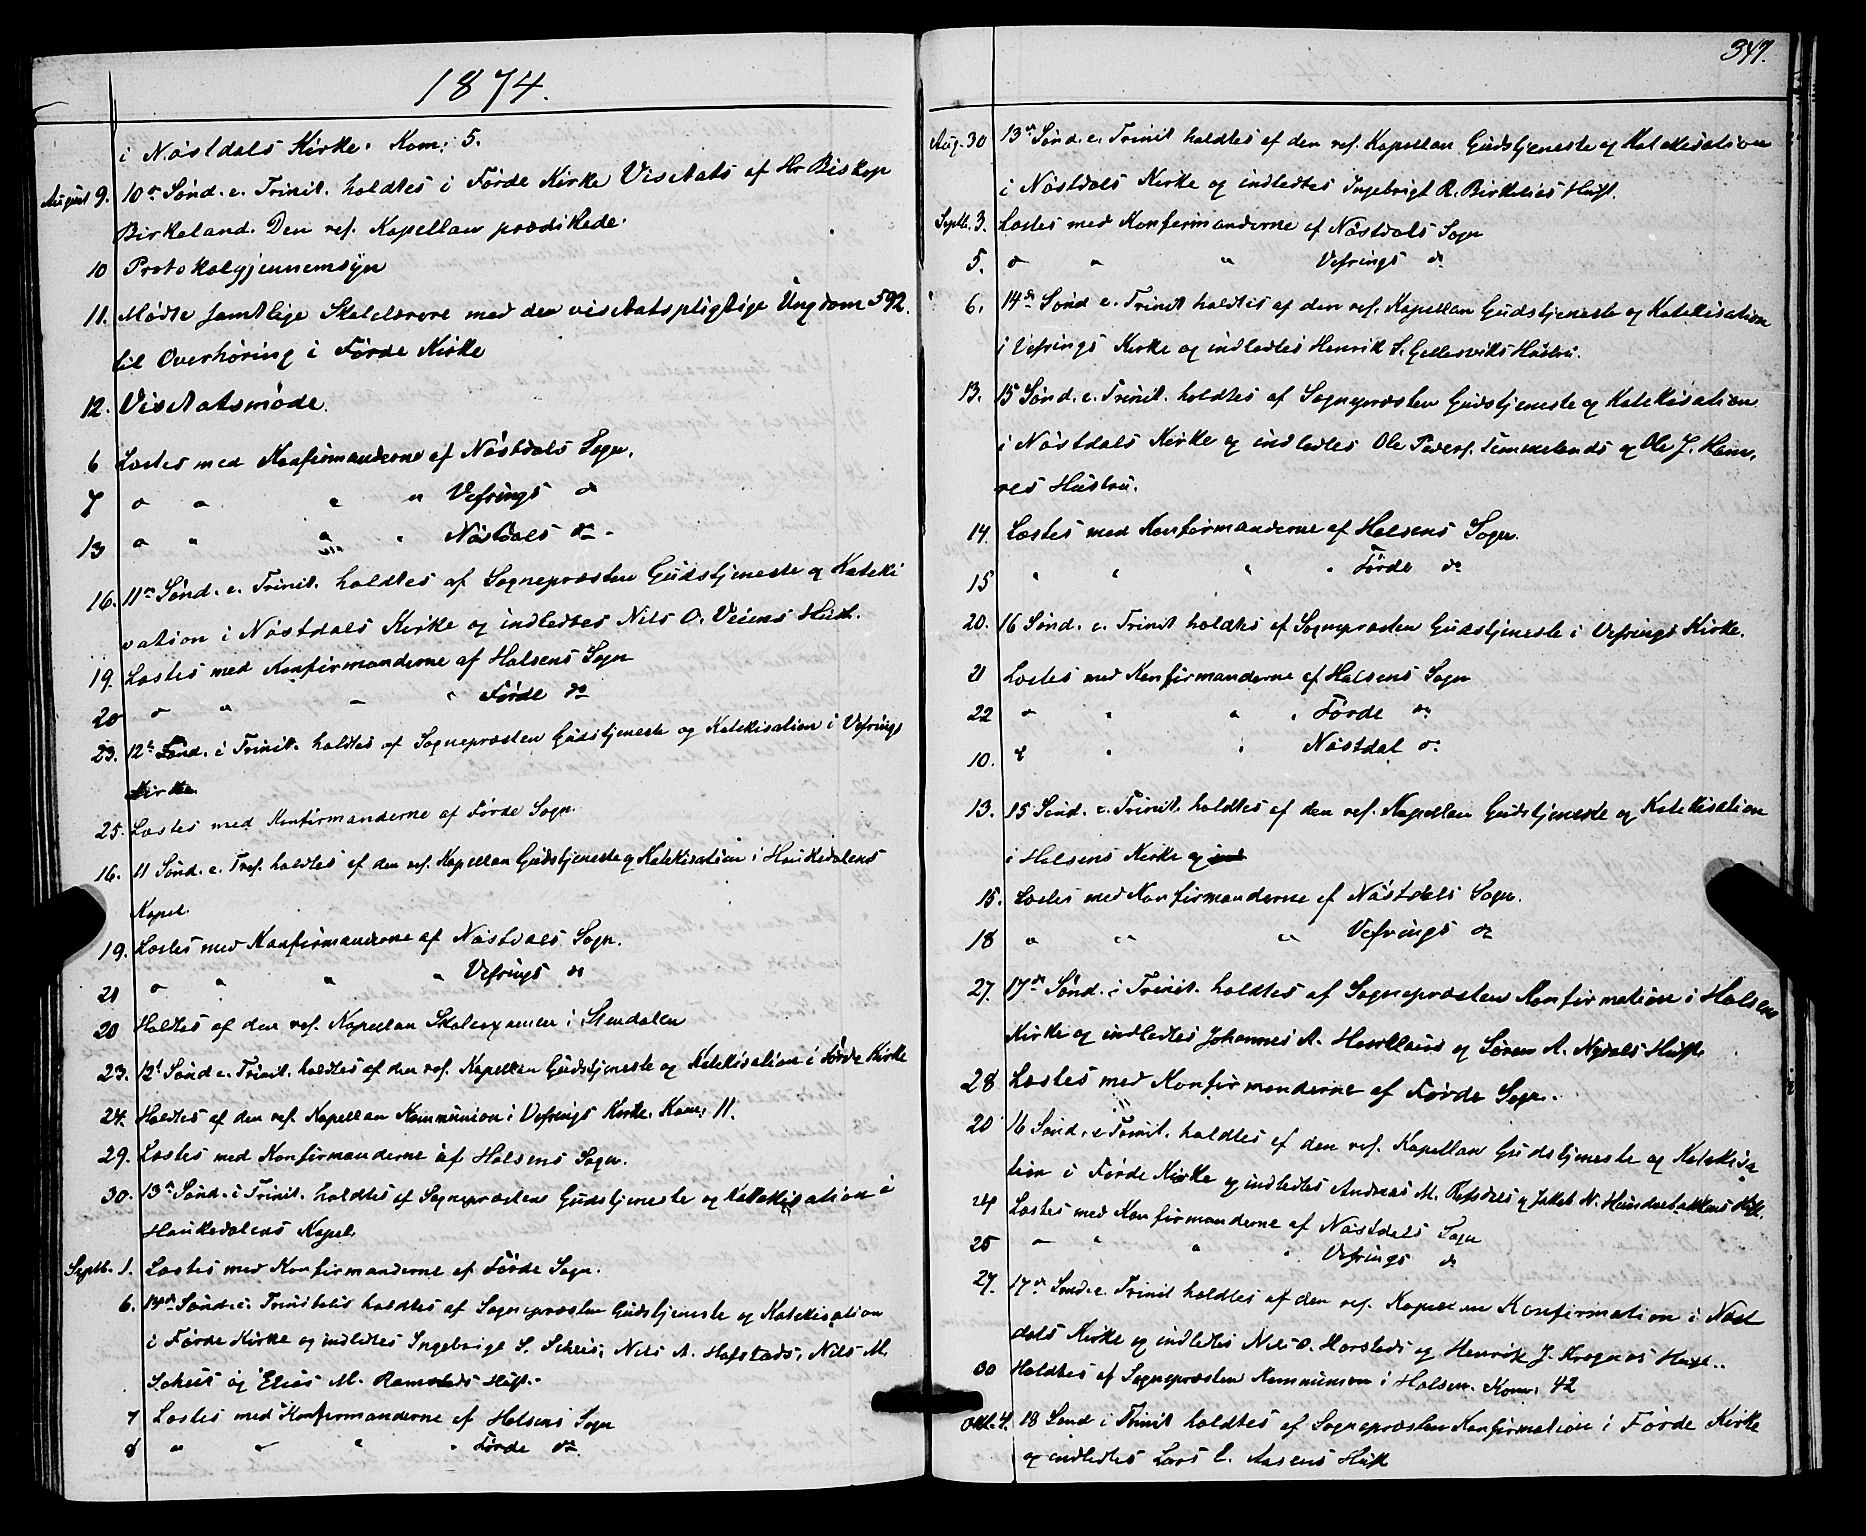 1874.
i Nøstdals Kirke. Kom: 5.
August 9. 10de Sønd. e. Trinit. holdtes i Førde Kirke Visitats af Hr Biskop
Birkeland. Den res. Kapellan prædikede.
10 Protokolgjennemsyn
11. Mødte samtlige Skolelærere med den visitatspligtige Ungdom 592.
til Overhøring i Førde Kirke
12. Visitatsmøde.
6 Læstes med Konfirmanderne af Nøstdals Sogn.
7 " " " " Vefrings do
13 " " " " Nøstdals do
16. 11te Sønd. e. Trinit. holdtes af Sognepræsten Gudstjeneste og Kateki
sation i Nøstdals Kirke og indledtes Nils O. Veiens Hust.
19. Læstes med Konfirmanderne af Holsens Sogn
20 " " " " Førde do
23. 12te Sønd. e Trinit. holdtes af Sognepræsten Gudstjeneste og Katekisation i Vefrings
Kirke.
25. Læstes med Konfirmanderne af Førde Sogn.
16. 11 Sønd. e. Tref. holdtes af den res. Kapellan Gudstjeneste og Katekisation i Haukedalens
Kapel.
19. Læstes med Konfirmanderne af Nøstdals Sogn.
21 " " " " Vefrings do
20 Holdtes af den res. Kapellan Skoleexamen i Stendalen
23. 12t Sønd e. Trinit. holdtes af den res. Kapellan Gudstjeneste og Katekisation i Førde Kirke
24. Holdtes af den res. Kapellan Kommunion i Vefrings Kirke. Kom: 11.
29. Læstes med Konfirmanderne af Holsens Sogn.
30. 13de Sønd. e Trinit. holdtes af Sognepræsten Gudstjeneste og Katekisation i
Haukedalens Kapel.
Septb. 1. Læstes med Konfirmanderne af Førde Sogn.
6. 14de Sønd. e. Trinitatis holdtes af Sognepræsten Gudstjeneste og Katekisation
i Førde Kirke og indledtes Ingebrigt S. Scheis, Nils A. Hafstads, Nils M.
Scheis og Elias M. Ramstads Hust.
7 Læstes med Konfirmanderne af Holsens Sogn
8 " " " " Førde do
347.
Aug. 30 13de Sønd. e. Trinit holdtes af den res. Kapellan Gudstjeneste og Katekisation
i Nøstdals Kirke og indledtes Ingebrigt R. Birkelies Hust.
Septb. 3. Læstes med Konfirmanderne af Nøstdals Sogn
5. " " " Vefrings do
6. 14de Sønd e. Trinit holdtes af den res. Kapellan Gudstjeneste og Katekisation
i Vefrings Kirke og indledtes Henrik S. Gellesviks Hustru.
13. 15 Sønd. e. Trinit. holdtes af Sognepræsten Gudstjeneste og Katekisation
i Nøstdals Kirke og indledtes Ole Peders. Timmelands og Ole J. Ham,
res Hustru.
14. Læstes med Konfirmanderne af Holsens Sogn.
15 " " " " Førde do
20. 16 Sønd. e. Trinit holdtes af Sognepræsten Gudstjeneste i Vefrings Kirke.
21 Læstes med Konfirmanderne af Holsens Sogn
22 " " " " Førde do
10. " " " Nøstdal do
13. 15 Sønd. e. Trinit. holdtes af den res. Kapellan Gudstjeneste og Katekisation
i Holsens Kirke og ind
15. Læstes med Konfirmanderne af Nøstdals Sogn.
18 " " " Vefrings do
27. 17de Sønd. e Trinit. holdtes af Sognepræsten Konfirmation i Holsens
Kirke og indledtes Johannes A. og Søren A. Nydals Hust.
28 Læstes med Konfirmanderne af Førde Sogn.
20 16 Sønd. e Trinit. holdtes af den res. Kapellan Gudstjeneste og Katekisa
tion i Førde Kirke og indledtes Andreas M. Refsdes og Jakob N. Hust.
24 Læstes med Konfirmanderne af Nøstdals Sogn
25 " " " " Vefrings do
27. 17de Sønd. e. Trinit holdtes af den res. Kapellan Konfirmation i Nøst
dals Kirke og indledtes Nils O. Horstads og Henrik J. Hust.
30 Holdtes af Sognepræsten Kommunion i Holsen. Kom: 42
Okt. 4. 18 Sønd e Trinit holdtes af Sognepræsten Konfirmation i Førde Kirke
og indledtes Lars E. Aasens Hust